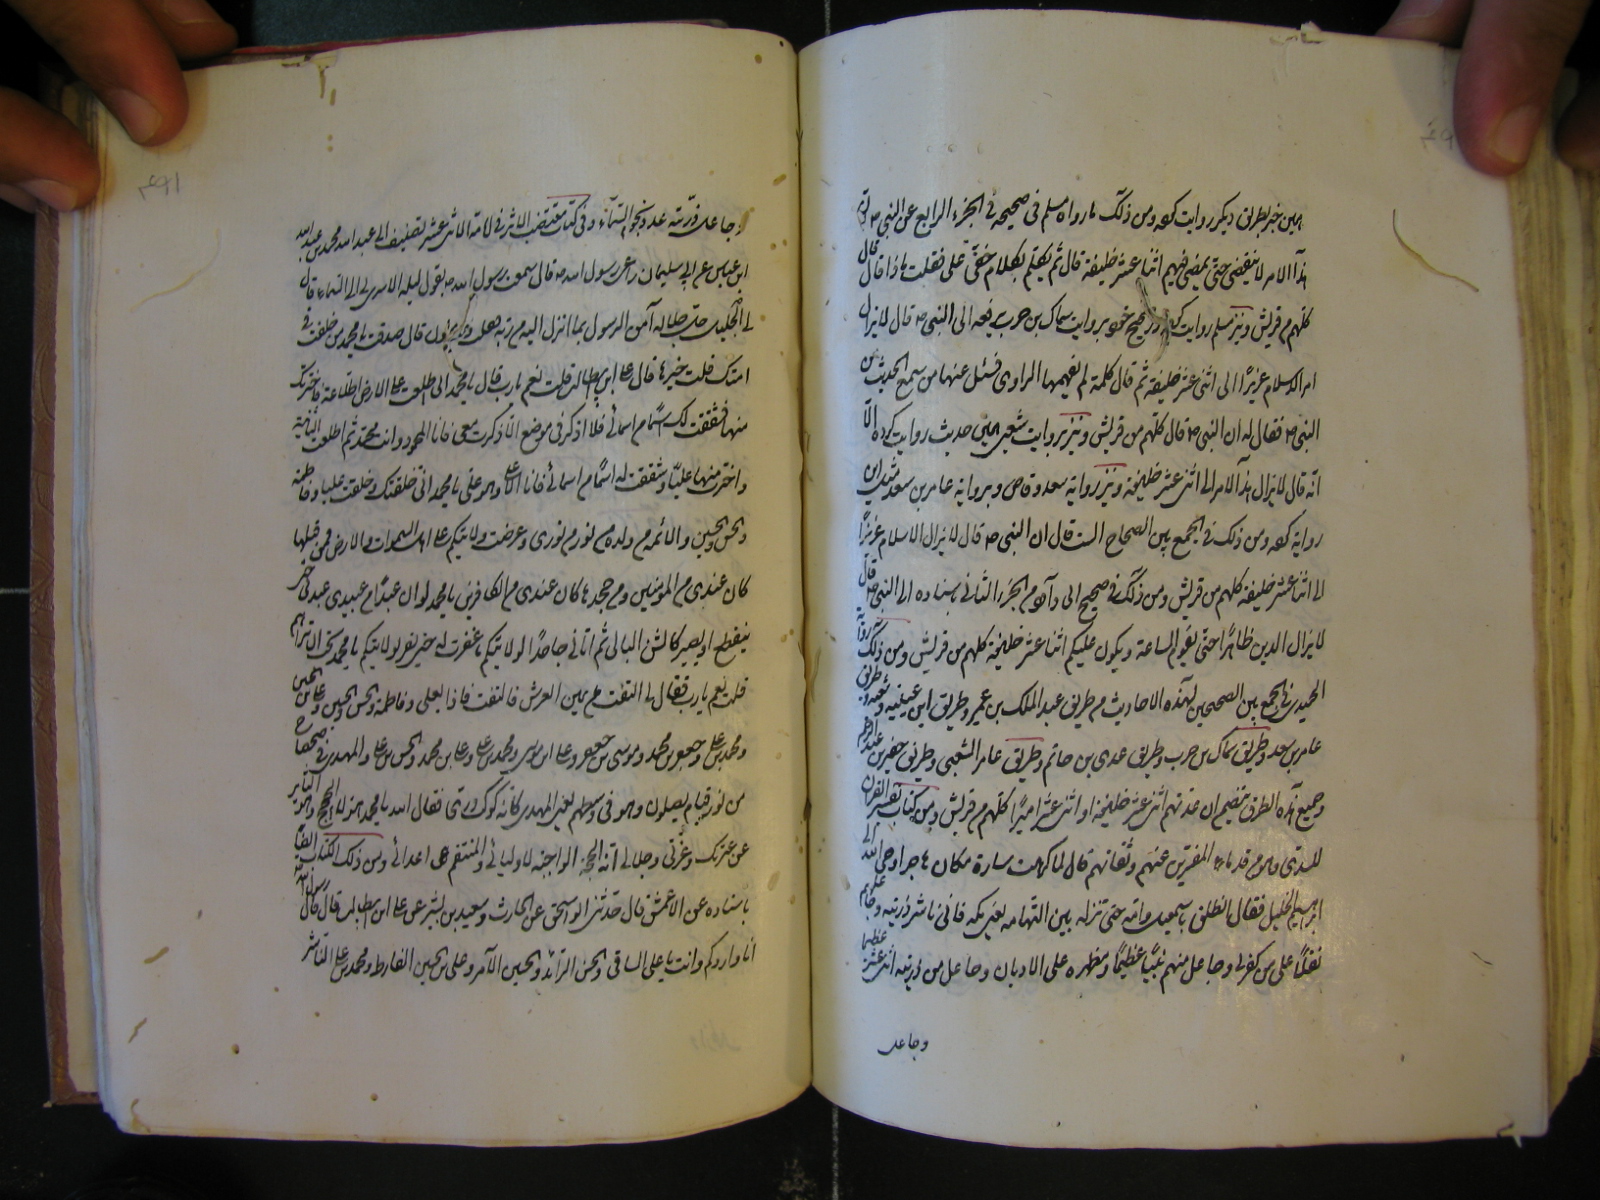 همین خبر بطریق دیگر روایت کرده ومن ذلک ما رواه مسلم فی صحیحه فی الجزء الرابع عن النبی ص ان
هذا الامر لا ینقضی حتی یمضی فیهم اثنا عشر خلیفة قال ثم تکلم بکلام خفی علی فقلت ماذا قال قال
کلهم من قریش ونیز مسلم روایت کرده در صحیح خود بروایت سماک بن حرب یرفعه الی النبی ص قال لا یزال
امر الاسلام عزیزا الی اثنی عشر خلیفة ثم قال کلمة لم افهمها الراوی فسئل عنها من سمع الحدیث من
النبی ص فقال له ان النبی ص قال کلهم من قریش ونیز بروایت شعبی همین حدیث روایت کرده الا
انه قال لا یزال هذا الامر الی اثنی عشر خلیفة ونیز روایة سعد وقاص وبروایة عامر بن سعد مثل این
روایة کرده ومن ذلک فی الجمع بین الصحاح الست قال ان النبی ص قال لا یزال الاسلام عزیزا
الی اثنا عشر خلیفة کلهم من قریش ومن ذلک فی صحیح ابی داود من الجزء الثانی باسناده الی النبی ص قال
لا یزال الدین ظاهرا حتی تقوم الساعة ویکون علیکم اثنا عشر خلیفة کلهم من قریش ومن ذلک روایة
الحمیدی فی الجمع بین الصحیحین لهذه الاحادیث من طریق عبد الملک بن عمیر وطریق ابن عیینه وشعبه وطریق
عامر بن سعد وطریق سماک بن حرب وطریق عدی بن حاتم وطریق عامر الشعبی وطریق حصین بن عبد الرحمن
وجمیع هذه الطرق یتضمن ان عدتهم اثنی عشر خلیفة او اثنی عشر امیرا کلهم من قریش ومن کتاب تفسیر القران
للسدی وهو من قدماء المفسرین عندهم وثقاتهم قال لما کرهت سارة مکان هاجر اوحی الله الی
ابراهیم الخلیل فقال انطلق باسمعیل وامه حتی تنزله بین التهامه یعنی مکه فانی ناشر ذریته وجاعلهم
ثقلا علی من کفر بی وجاعل منهم نبیا عظیما ومظهره علی الادیان وجاعل من ذریته اثنی عشر عظیما
وجاعل
وجاعل ذریته عدد نجوم السماء وفی کتاب مقتضب الاثر فی لامة الاثنی عشر تصنیف ابی عبد الله محمد بن عبد الله
ابن عیاش عن ابی سلیمان راعی رسول الله ص قال سمعت رسول الله ص یقول لیلة الاسری بی الی السماء قال
لی الجلیل جل جلاله آمن الرسول بما انزل الیه من ربه فقلت والمؤمنون قال صدقت یا محمد من خلفت فی
امتک قلت خیرها قال علی بن ابی طالب قلت نعم یا رب قال یا محمد انی اطلعت علی الارض اطلاعة فاخترتک
منها فشققت لک اسما من اسمائی فلا اذکر فی موضع الا ذکرت معی فانا المحمود وانت محمد ثم اطلعت الثانیة
واخترت منها علیا وشققت له اسما من اسمائی فانا الاعلی وهو علی یا محمد انی خلقتک وخلقت علیا وفاطمة
والحسن والحسین والائمه من ولده من نور من نوری وعرضت ولایتکم علی اهل السموات والارض فمن قبلها
کان عندی من المؤمنین ومن جحدها کان عندی من الکافرین یا محمد لو ان عبدا من عبیدی عبدنی حتی
ینقطع او یصیر کالشن البالی ثم اتانی جاحدا لولایتکم ما غفرت له حتی یقر بولایتکم یا محمد تحب ان تراهم
قلت نعم یا رب فقال لی التفت عن یمین العرش فالتفت فاذا بعلی وفاطمة والحسن والحسین وعلی بن الحسین
ومحمد بن علی وجعفر بن محمد وموسی بن جعفر وعلی بن موسی ومحمد بن علی وعلی بن محمد والحسن بن علی والمهدی فی ضحضاح
من نور قیام یصلون وهو فی وسطهم یعنی المهدی کانه کوکب دری فقال الله یا محمد هؤلاء الحجج وهو الثائر
من عترتک وعزتی وجلالی انه الحجة الواجبة لاولیائی والمنتقم من اعدائی ومن ذلک الکتاب ایضا
باسناده عن الاعمش قال حدثنی ابو اسحق عن الحارث وسعید بن بشر عن علی بن ابی طالب قال قال رسول الله ص
انا واردکم وانت یا علی الساقی والحسن الرائد والحسین الآمر وعلی بن الحسین الفارط ومحمد بن علی الناشر